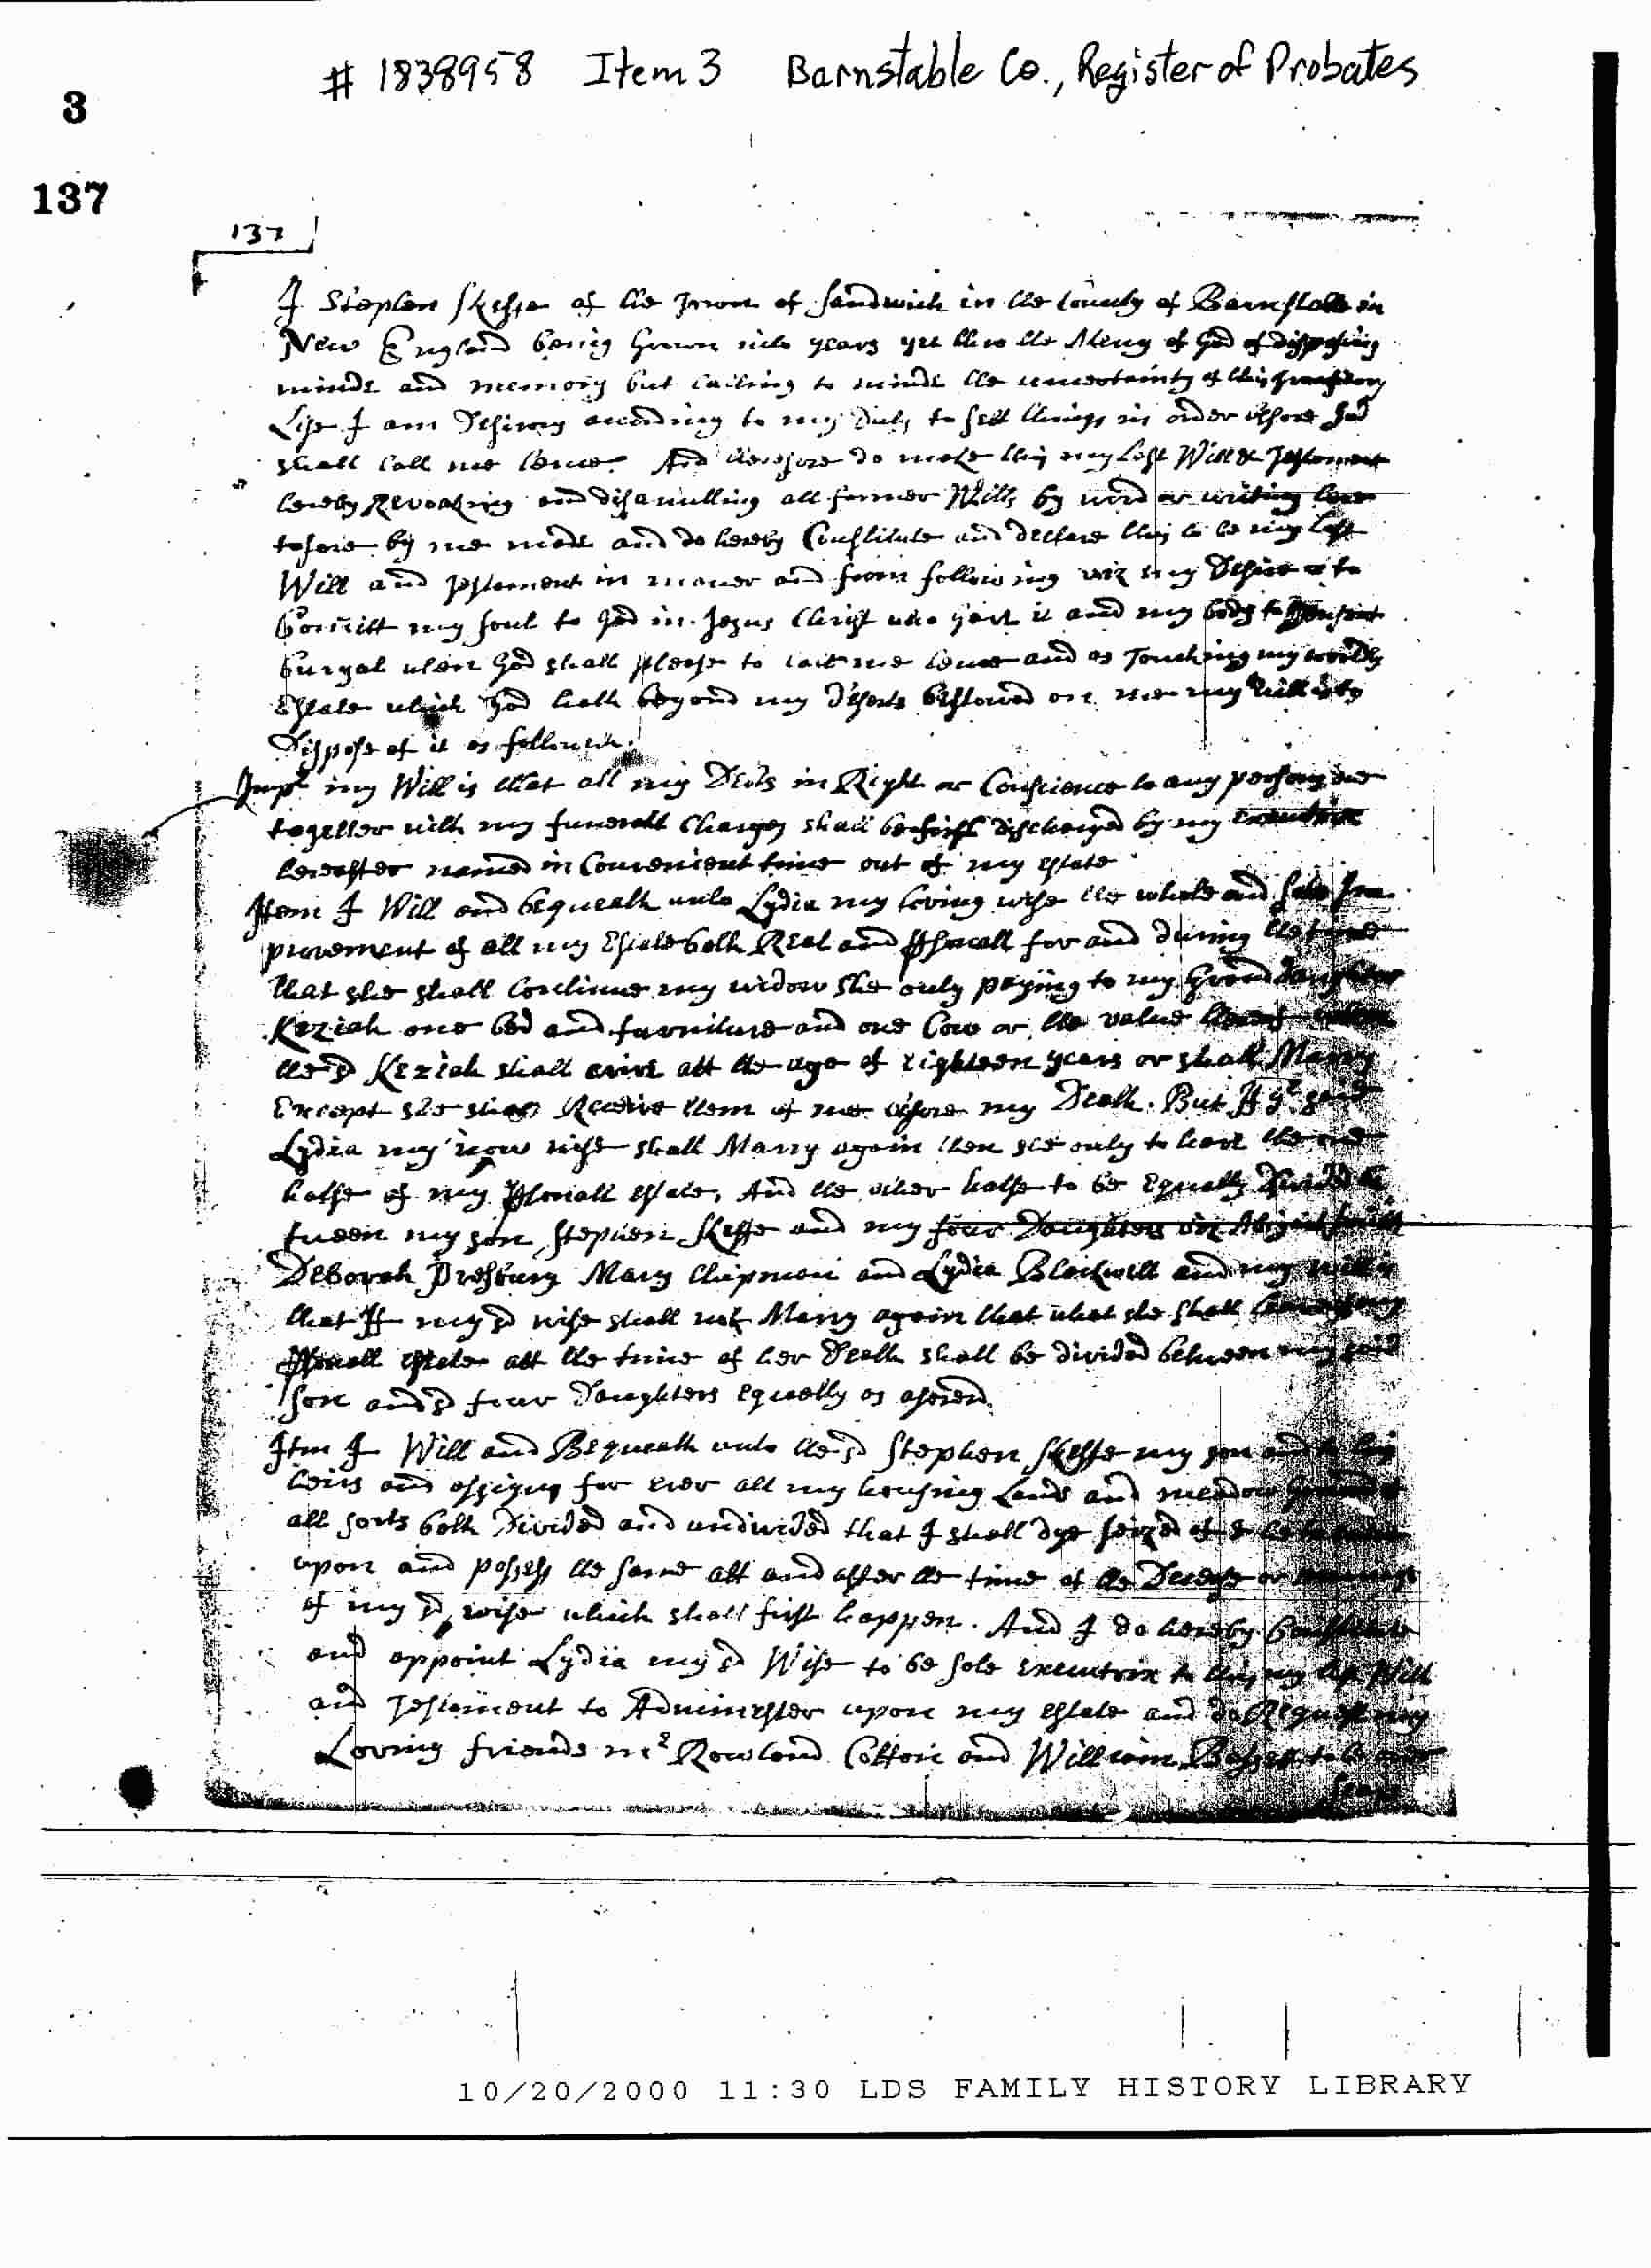 # 1838958 Item 3 Barnstable Co., Register of Probates
3
137
137
I Stephen Skeffe of the Town of Sandwich in the County of Barnstable in
New England being Grown into years yet thro the Mercy of God of disposing
minde and memory but calling to minde the uncertainty of this transitory
Life I am Desirous according to my Duty to sett things in order before God
shall call me hence. And therefore do make this my Last Will & Testament
hereby Revoaking and disanulling all former Wills by word or writing here
tofore by me made and do hereby Constitute and declare this to be my last
Will and Testament in maner and form following viz my Desire is to
Comitt my soul to God in Jesus Christ who gave it and my body to
buryal when God shall please to call me hence and as Touching my worldly
Estate which God hath beyond my deserts bestowed on me my will is to
Dispose of it as followeth.
Imps my Will is that all my Debts in Right or Conscience to any persons due
together with my funerall Charges shall be first discharged by my executrix
hereafter named in Convenient time out of my estate
Item I Will and bequeath unto Lydia my loving wife the whole and sole Im
provement of all my Estate both Real and Psonall for and during the time
that she shall Continue my widow she only paying to my Grand daughter
Keziah one bed and furniture and one Cow or the value thereof when
the sd Keziah shall arive att the age of eighteen years or shall Marry
Except she shall Receive them of me before my Death. But If ye said
Lydia my now wife shall Marry again then she only to have the one
halfe of my Psonall estate, And the other halfe to be Equally Divided be
tween my son Stephen Skeffe and my four Daughters viz Abigail
Deborah Presbury Mary Chipman and Lydia Blackwell and my will is
that If my sd wife shall not Marry again that what she shall leave of my
Psonall estate att the time of her Death shall be divided between my said
son and sd four Daughters equally as aforesd.
Itm I Will and Bequeath unto the sd Stephen Skeffe my son and to his
heirs and assigns for ever all my housing Lands and meadow Ground of
all sorts both Divided and undivided that I shall dye seized of
upon and possess the same att and after the time of the Decease or marriage
of my sd wife which shall first happen. And I do hereby Constitute
and appoint Lydia my sd Wife to be sole executrix to this my last Will
and Testament to Adminester upon my estate and do Request my
Loving friends mr Rowland Cotton and William Basset to be over
seers
10/20/2000 11:30 LDS FAMILY HISTORY LIBRARY